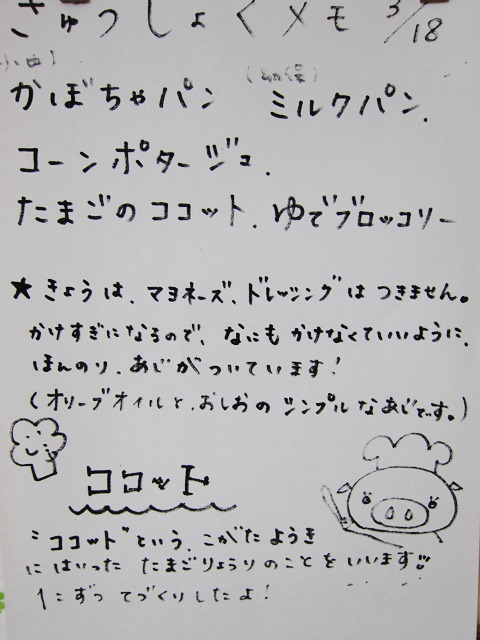 きゅうしょくメモ 3/18
かぼちゃパン ミルクパン.
コーンポタージュ.
たまごのココット. ゆでブロッコリー
★きょうは、マヨネーズ、ドレッシングはつきません。
かけすぎになるので、なにもかけなくていいように、
ほんのり、あじがついています!
(オリーブオイルと、おしおのシンプルなあじです。)
ココット
"ココット"という、こがたようき
にはいった たまごりょうりのことをいいます
1こずつてづくりしたよ!